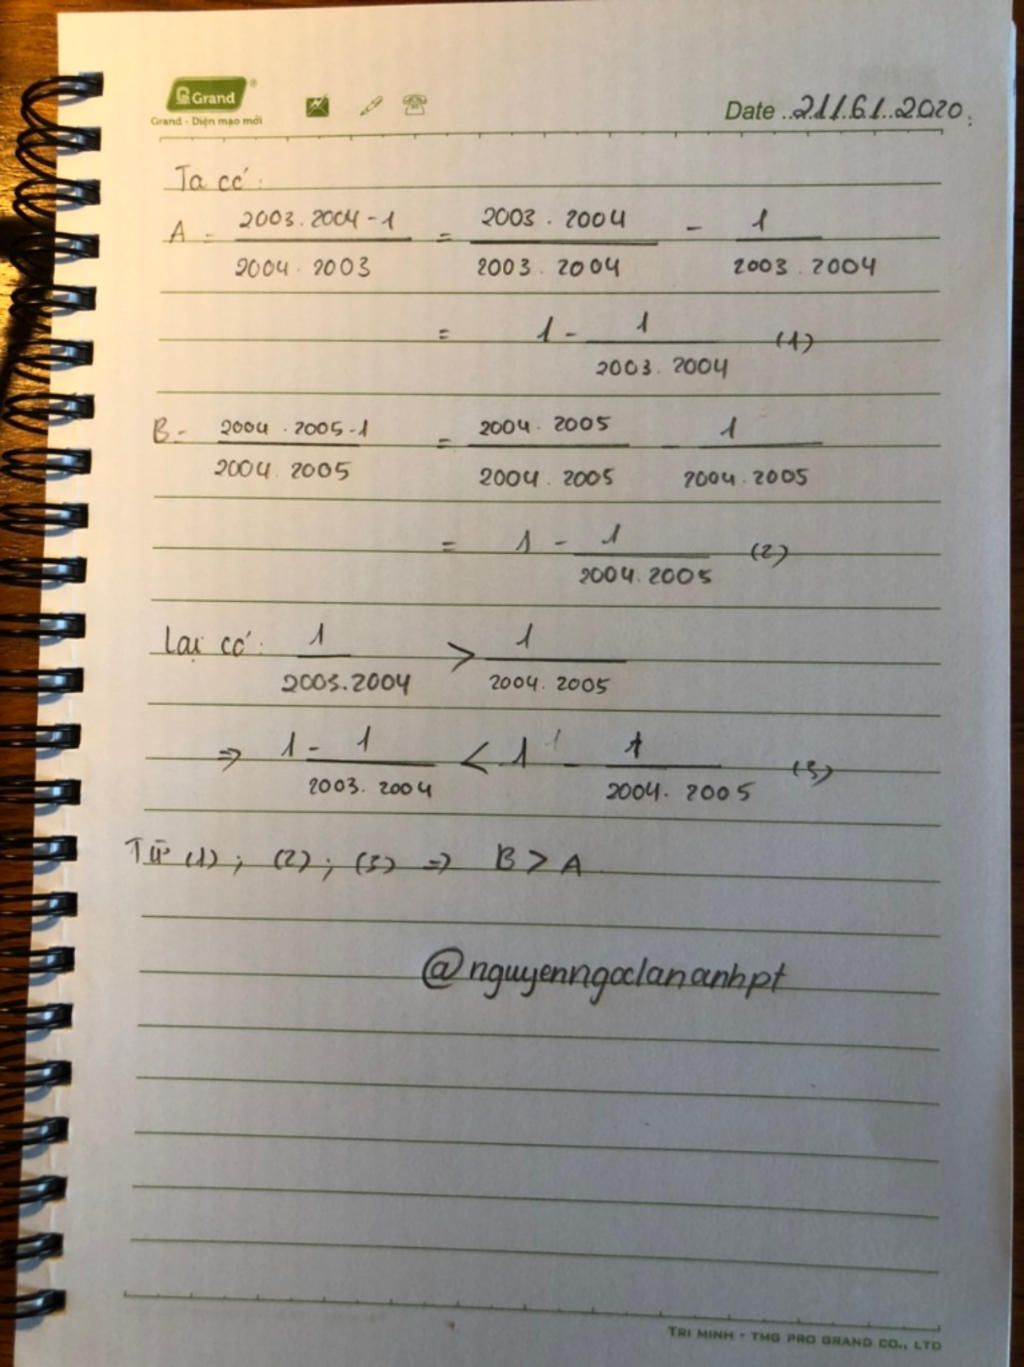 Grand ®
Grand - Diện mạo mới
Date ..21/.6/..2020.
Ta có:
A = 2003.2004-1 / 2004.2003 = 2003.2004 / 2003.2004 - 1 / 2003.2004
= 1 - 1 / 2003.2004 (1)
B = 2004.2005-1 / 2004.2005 = 2004.2005 / 2004.2005 - 1 / 2004.2005
= 1 - 1 / 2004.2005 (2)
Lại có: 1 / 2003.2004 > 1 / 2004.2005
⇒ 1 - 1 / 2003.2004 < 1 - 1 / 2004.2005 (3)
Từ (1) ; (2) ; (3) ⇒ B > A
@nguyenngoclananhpt
TRI MINH - TMG PRO GRAND CO., LTD